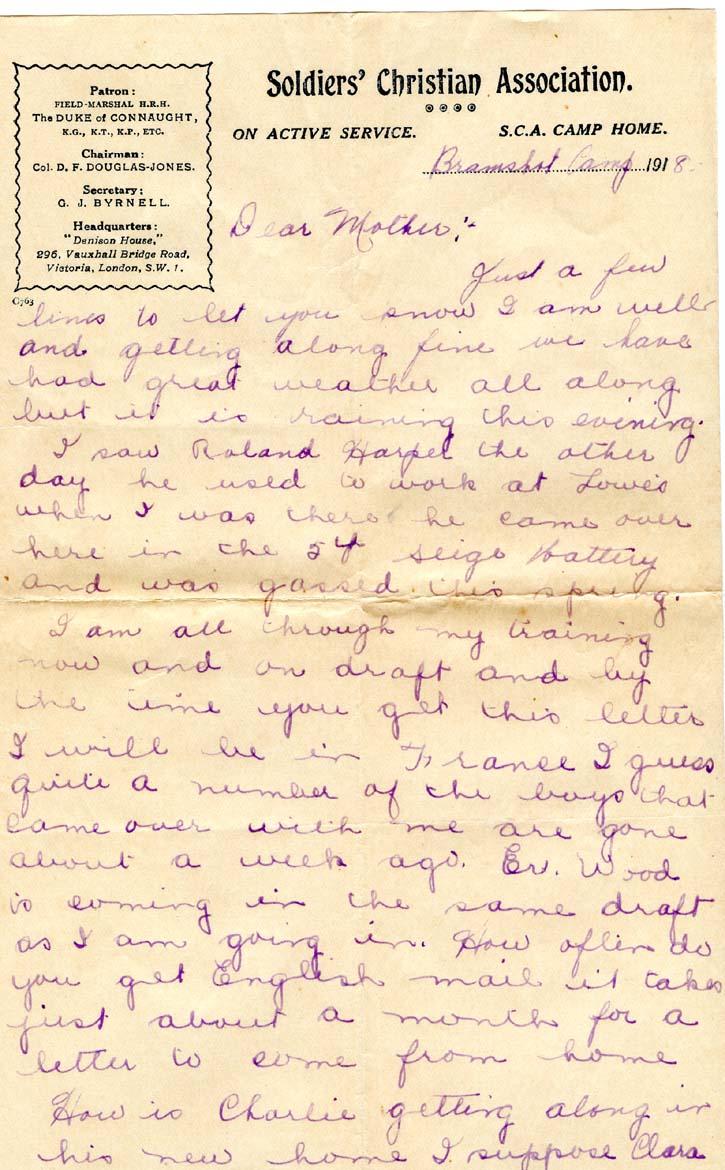 Patron:
FIELD-MARSHAL H.R.H.
The DUKE of CONNAUGHT,
K.G., K.T., K.P., ETC.
Chairman:
Col. D. F. DOUGLAS-JONES.
Secretary:
G. J. BYRNELL.
Headquarters:
"Denison House,"
296, Vauxhall Bridge Road,
Victoria, London, S.W. 1.
C763
Soldiers' Christian Association.
ON ACTIVE SERVICE. S.C.A. CAMP HOME.
Bramshot Camp 1918.
Dear Mother;-
Just a few
lines to let you know I am well
and getting along fine we have
had great weather all along
but it is raining this evening.
I saw Roland Harper the other
day he used to work at Lowes
when I was there he came over
here in the seige battery
and was gassed this spring.
I am all through my training
now and on draft and by
the time you get this letter
I will be in France I guess
quite a number of the boys that
came over with me are gone
about a week ago. Er. Wood
is coming in the same draft
as I am going in. How often do
you get English mail it takes
just about a month for a
letter to come from home
How is Charlie getting along in
his new home I suppose Clara